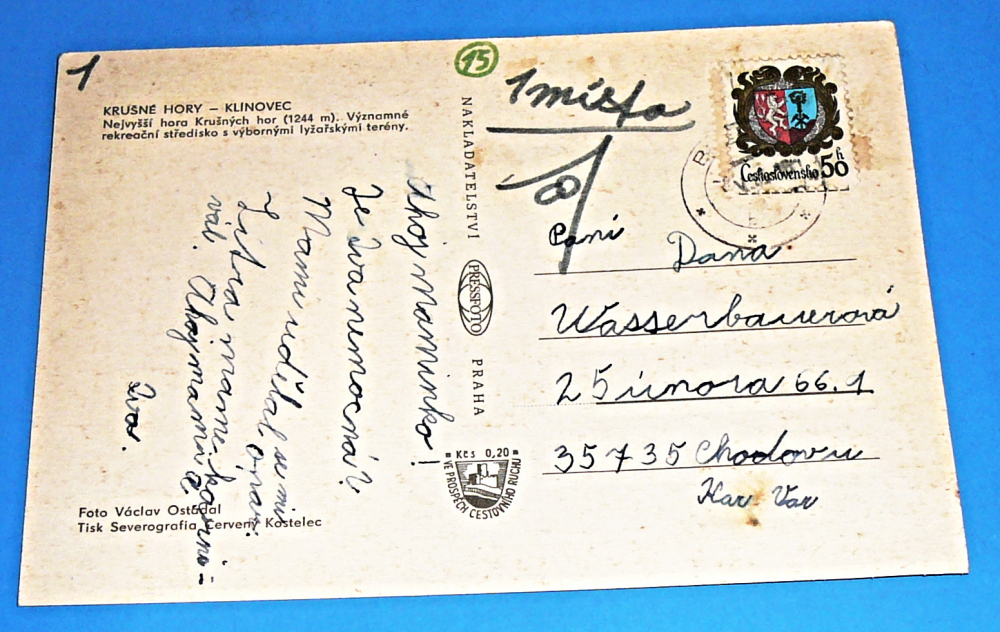 1
KRUŠNÉ HORY – KLÍNOVEC
Nejvyšší hora Krušných hor (1244 m). Významné
rekreační středisko s výbornými lyžařskými terény.
Ahoj maminko!
Je Iva nemocná?
Mami udělal se mi
opar.
Zítra máme karne-
val. Ahoj mami
Iva.
Foto Václav Ostádal
Tisk Severografia Červený Kostelec
15
NAKLADATELSTVÍ
PRESSFOTO
PRAHA
■ Kčs 0,20 ■
VE PROSPĚCH CESTOVNÍHO RUCHU
1 místo
Československo 50 h
Paní
Dana
Wasserbauerová
25 února 66. 1
35735 Chodov u
Kar Var